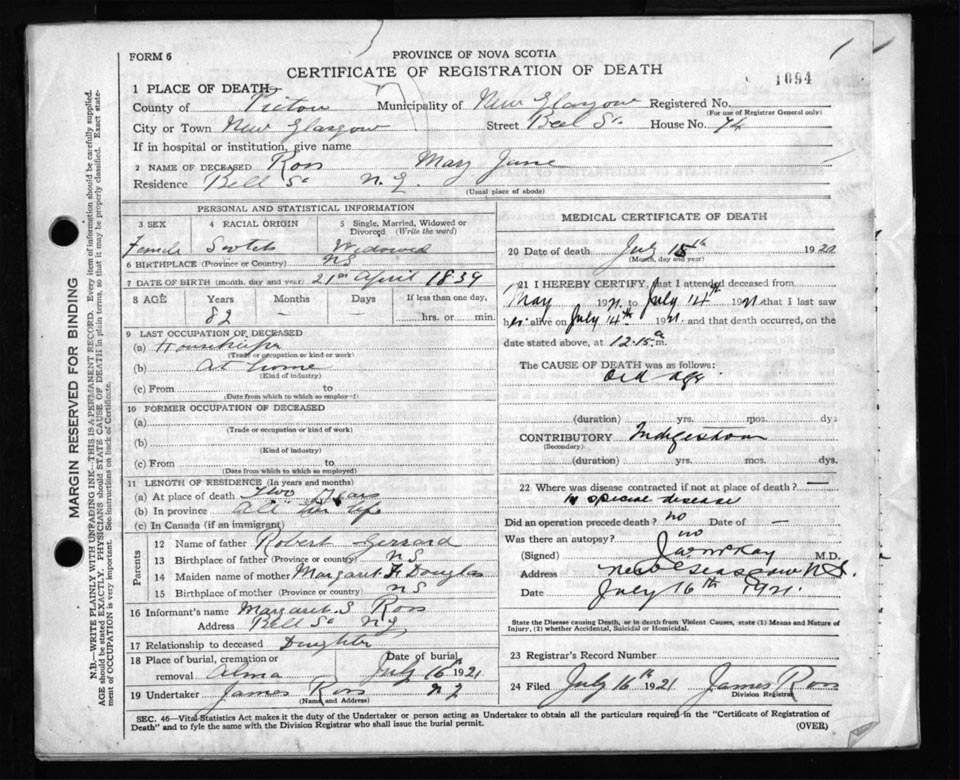 FORM 6
PROVINCE OF NOVA SCOTIA
CERTIFICATE OF REGISTRATION OF DEATH
1094
1 PLACE OF DEATH
County of Pictou Municipality of New Glasgow Registered No.
(For use of Registrar General only)
City or Town New Glasgow Street Bell St. House No. 74
If in hospital or institution, give name
2 NAME OF DECEASED Ross Mary Jane
Residence Bell St N.G.
(Usual place of abode)
PERSONAL AND STATISTICAL INFORMATION
3 SEX 4 RACIAL ORIGIN 5 Single, Married, Widowed or Divorced (Write the word)
Female Scotch Widowed
6 BIRTHPLACE (Province or Country) NS
7 DATE OF BIRTH (month, day and year) 21st April 1839
8 AGE Years Months Days If less than one day,
82 – – hrs. or min.
9 LAST OCCUPATION OF DECEASED
(a) Housekeeper
(Trade or occupation or kind or work)
(b) At home
(Kind of industry)
(c) From to
(Date from which to which so employed)
10 FORMER OCCUPATION OF DECEASED
(a)
(Trade or occupation or kind of work)
(b)
(Kind of industry)
(c) From to
(Date from which to which so employed)
11 LENGTH OF RESIDENCE (In years and months)
(a) At place of death Two Years
(b) In province All her life
(c) In Canada (if an immigrant)
Parents
12 Name of father Robert Gerrard
13 Birthplace of father (Province or country) NS
14 Maiden name of mother Margaret Douglas
15 Birthplace of mother (Province or country) NS
16 Informant's name Margaret S Ross
Address Bell St N G
17 Relationship to deceased Daughter
18 Place of burial, cremation or removal Alma
Date of burial July 16 1921
19 Undertaker James Ross N G
(Name and Address)
MEDICAL CERTIFICATE OF DEATH
20 Date of death July 15th 1920
(Month, day and year)
21 I HEREBY CERTIFY, that I attended deceased from
May 1921 to July 14th 1921 that I last saw
her alive on July 14th 1921 and that death occurred, on the
date stated above, at 12.15 a m.
The CAUSE OF DEATH was as follows:
Old age
(duration) yrs. mos. dys
CONTRIBUTORY Indigestion
(Secondary)
(duration) yrs. mos. dys.
22 Where was disease contracted if not at place of death? —
special disease
Did an operation precede death? no Date of —
Was there an autopsy? no
(Signed) McKay M.D.
Address New Glasgow N.S.
Date July 16th 1921.
State the Disease causing Death, or in death from Violent Causes, state (1) Means and Nature of Injury, (2) whether Accidental, Suicidal or Homicidal.
23 Registrar's Record Number
24 Filed July 16th 1921 James Ross
Division Registrar
SEC. 46—Vital Statistics Act makes it the duty of the Undertaker or person acting as Undertaker to obtain all the particulars required in the "Certificate of Registration of
Death" and to fyle the same with the Division Registrar who shall issue the burial permit. (OVER)
MARGIN RESERVED FOR BINDING
N.B.—WRITE PLAINLY WITH UNFADING INK—THIS IS A PERMANENT RECORD. Every item of information should be carefully supplied.
AGE should be stated EXACTLY. PHYSICIANS should STATE CAUSE OF DEATH in plain terms, so that it may be properly classified. Exact statement of OCCUPATION is very important. See instructions on back of Certificate.